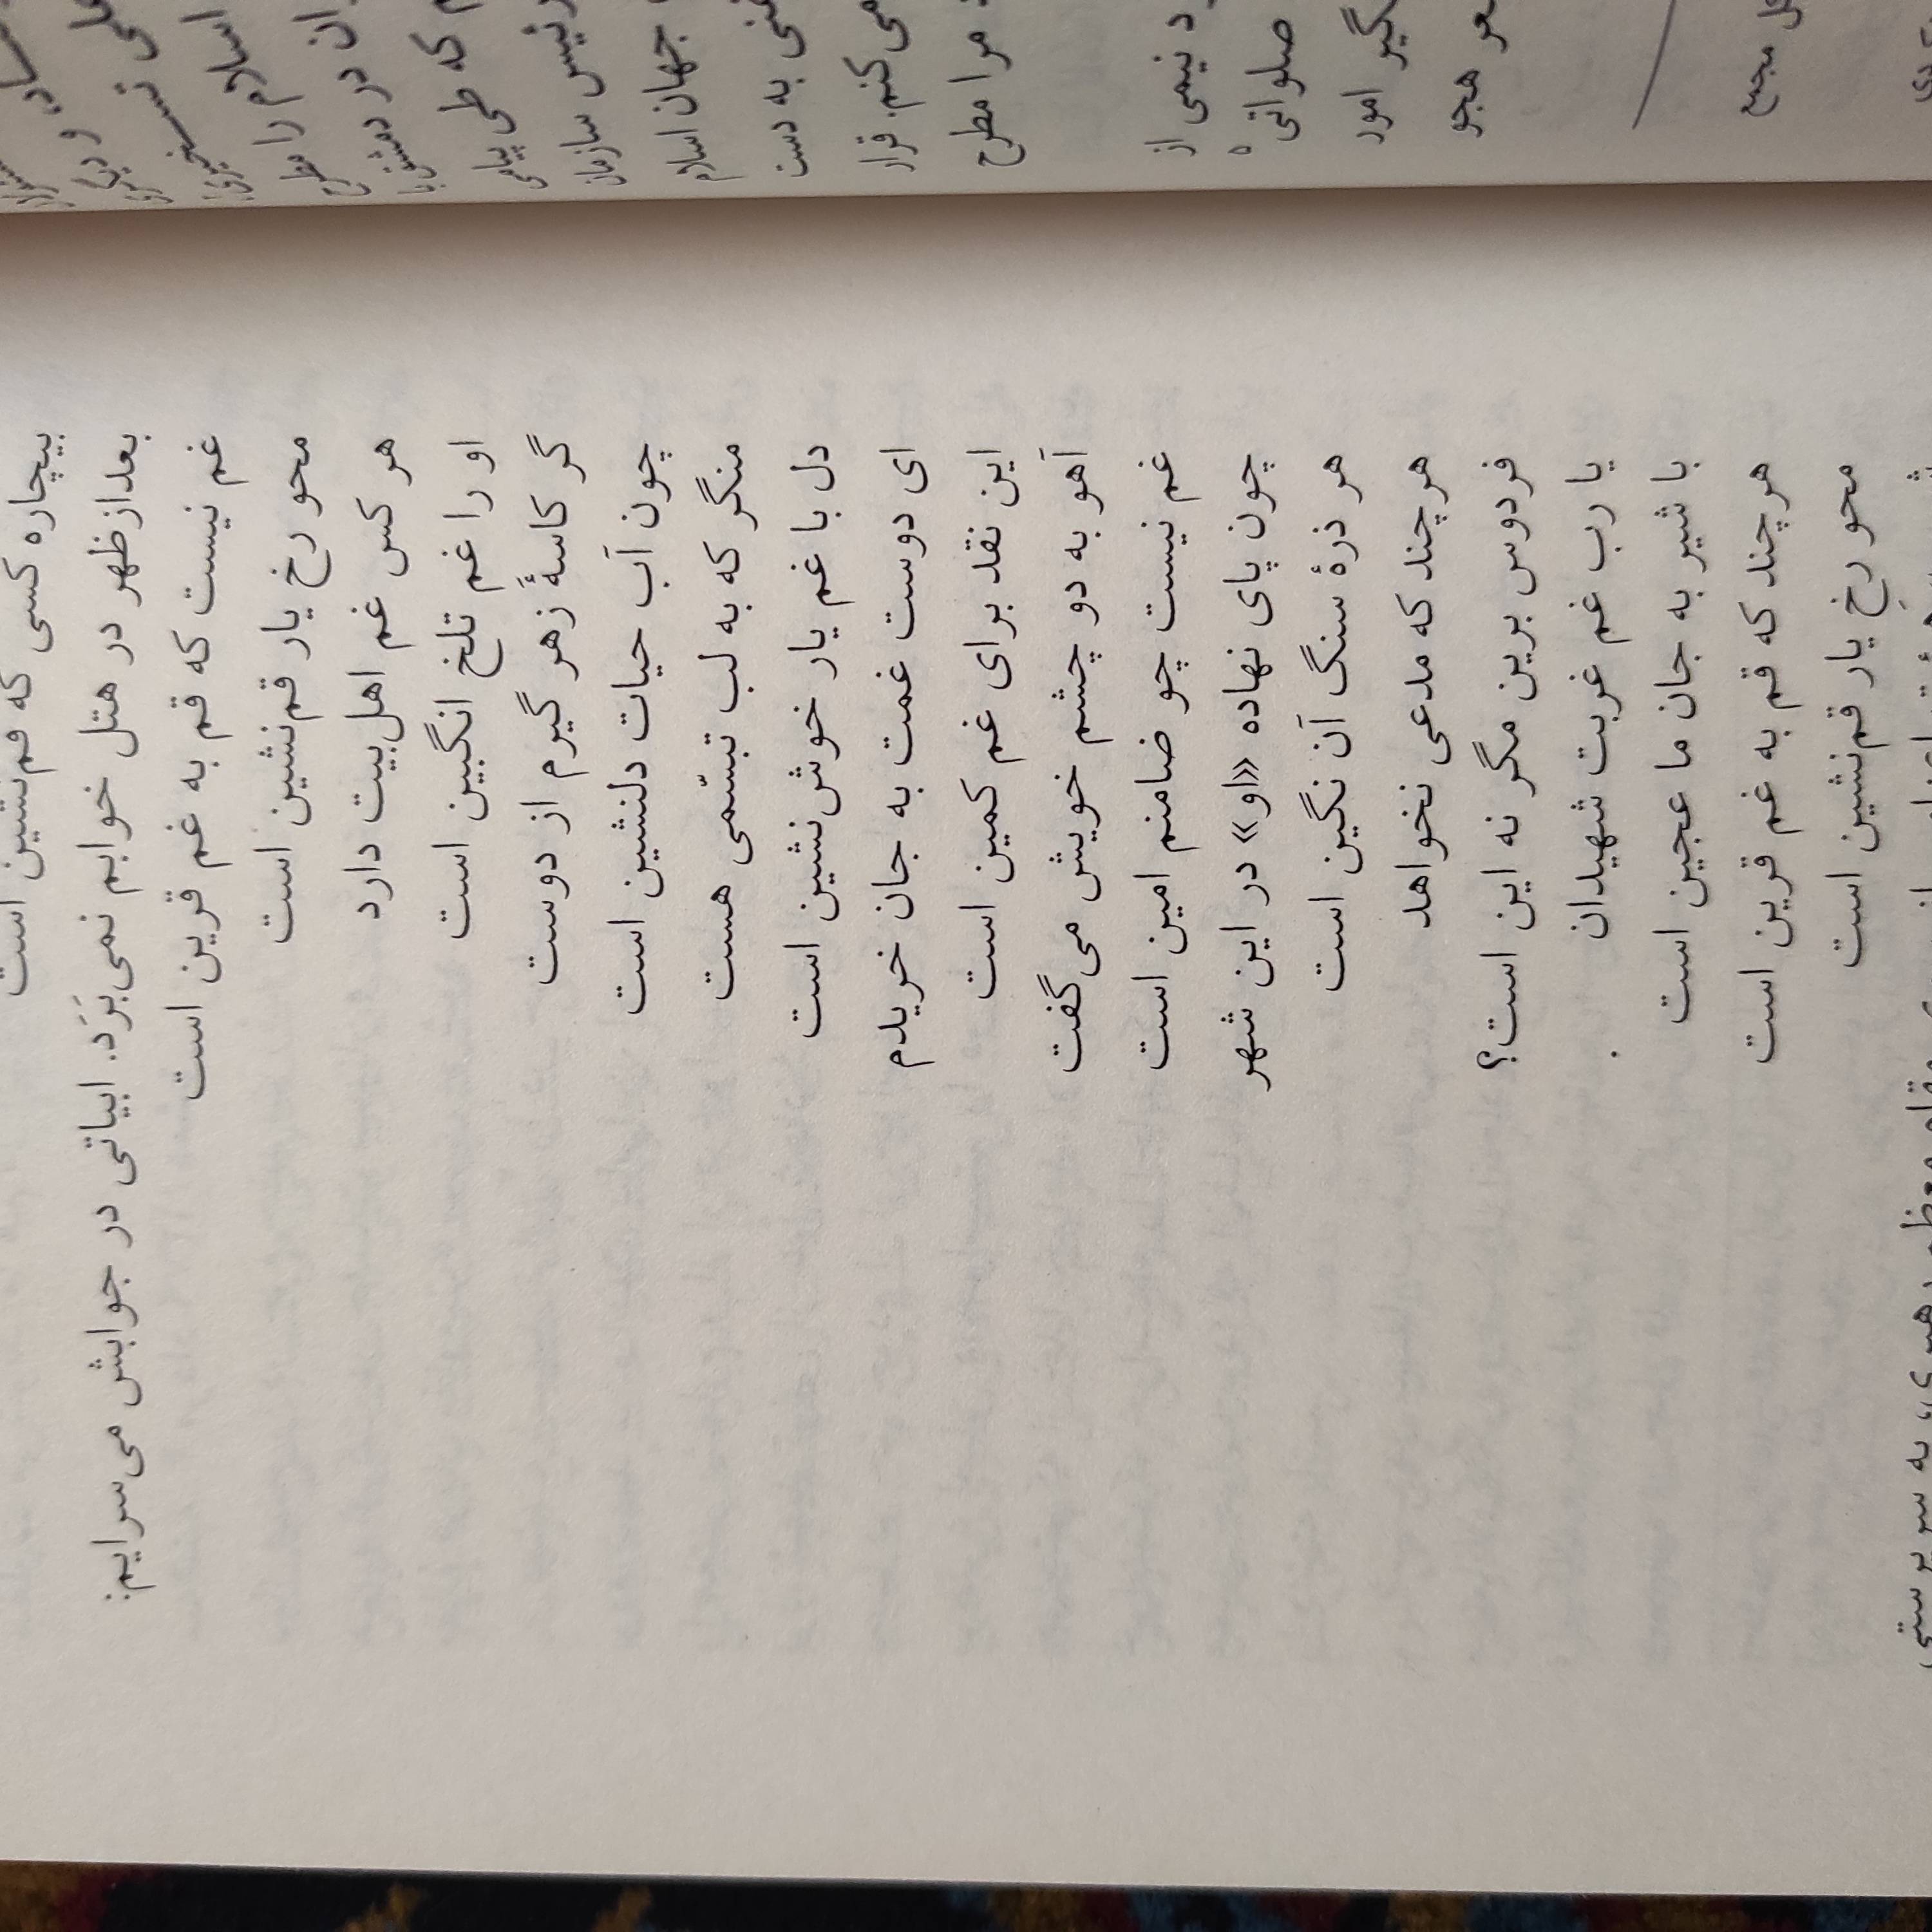 بیچاره کسی که قم‌نشین است
بعدازظهر در هتل خوابم نمی‌بَرَد. ابیاتی در جوابش می‌سرایم:
غم نیست که قم به غم قرین است
محو رخ یار قم‌نشین است
هر کس غم اهل‌بیت دارد
او را غم تلخ انگبین است
گر کاسهٔ زهر گیرم از دوست
چون آب حیات دلنشین است
منگر که به لب تبسّمی هست
دل با غم یار خوش‌نشین است
ای دوست غمت به جان خریدم
این نقد برای غم کمین است
آهو به دو چشم خویش می‌گفت
غم نیست چو ضامنم امین است
چون پای نهاده «او» در این شهر
هر ذرهٔ سنگ آن نگین است
هرچند که مدعی نخواهد
فردوس برین مگر نه این است؟
یا رب غم غربت شهیدان
با شیر به جان ما عجین است
هرچند که قم به غم قرین است
محو رخِ یار قم‌نشین است
اسلام را مطرح
ان در دمشق با
که طی پیامی
رئیس سازمان
جهان اسلام
به دست
می‌کنم. قرار
مرا مطرح
د نیمی از
صلواتی
گیر امور
هجو
مجمع